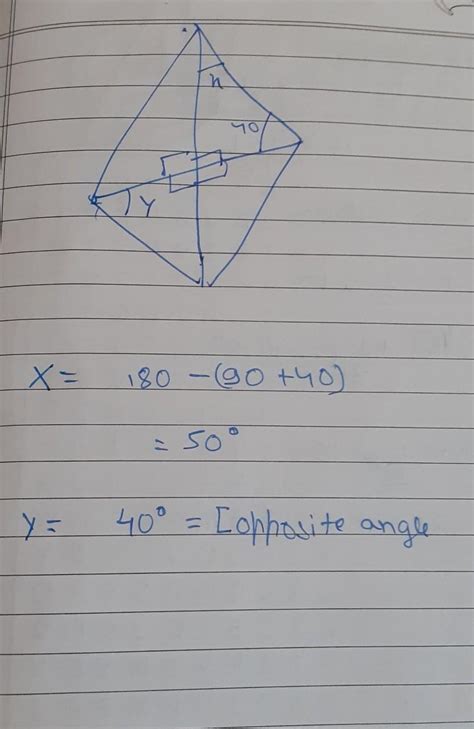 x
40
y
X = 180 - (90 + 40)
= 50°
Y = 40° = [opposite angle